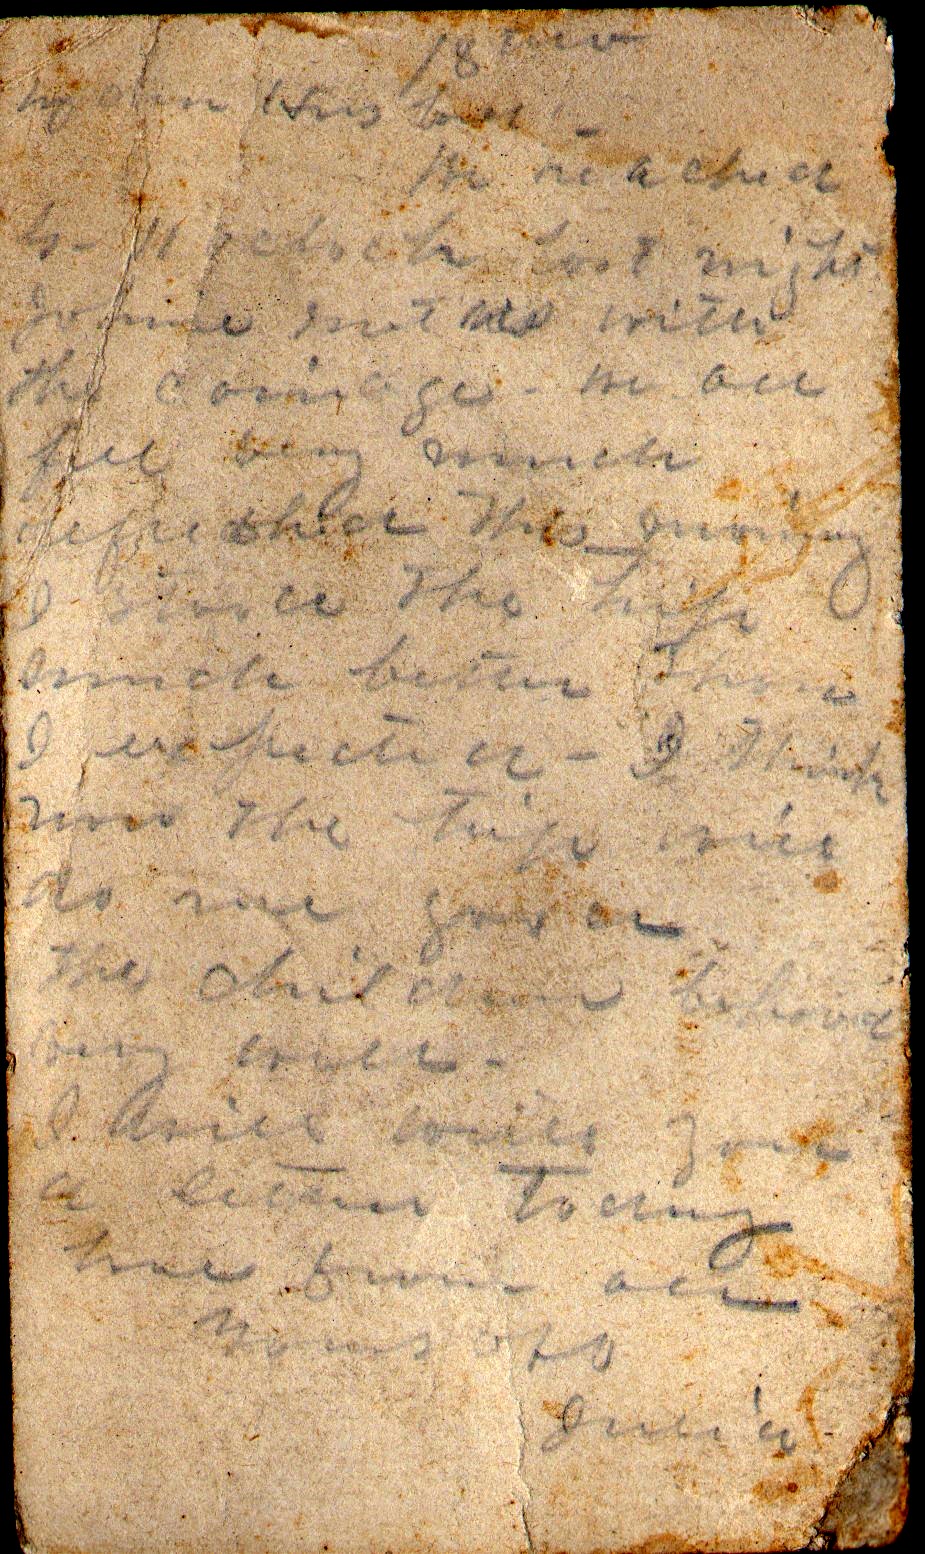 18 Nov
My Own Husband -
We reached
last night
met us with
the carriage - We all
feel very much
refreshed this morning
I stood the trip
much better than
I expected - I think
now the trip will
do me good
the children behaved
very well -
I will write you
a letter today
love from all
Yours
Julia